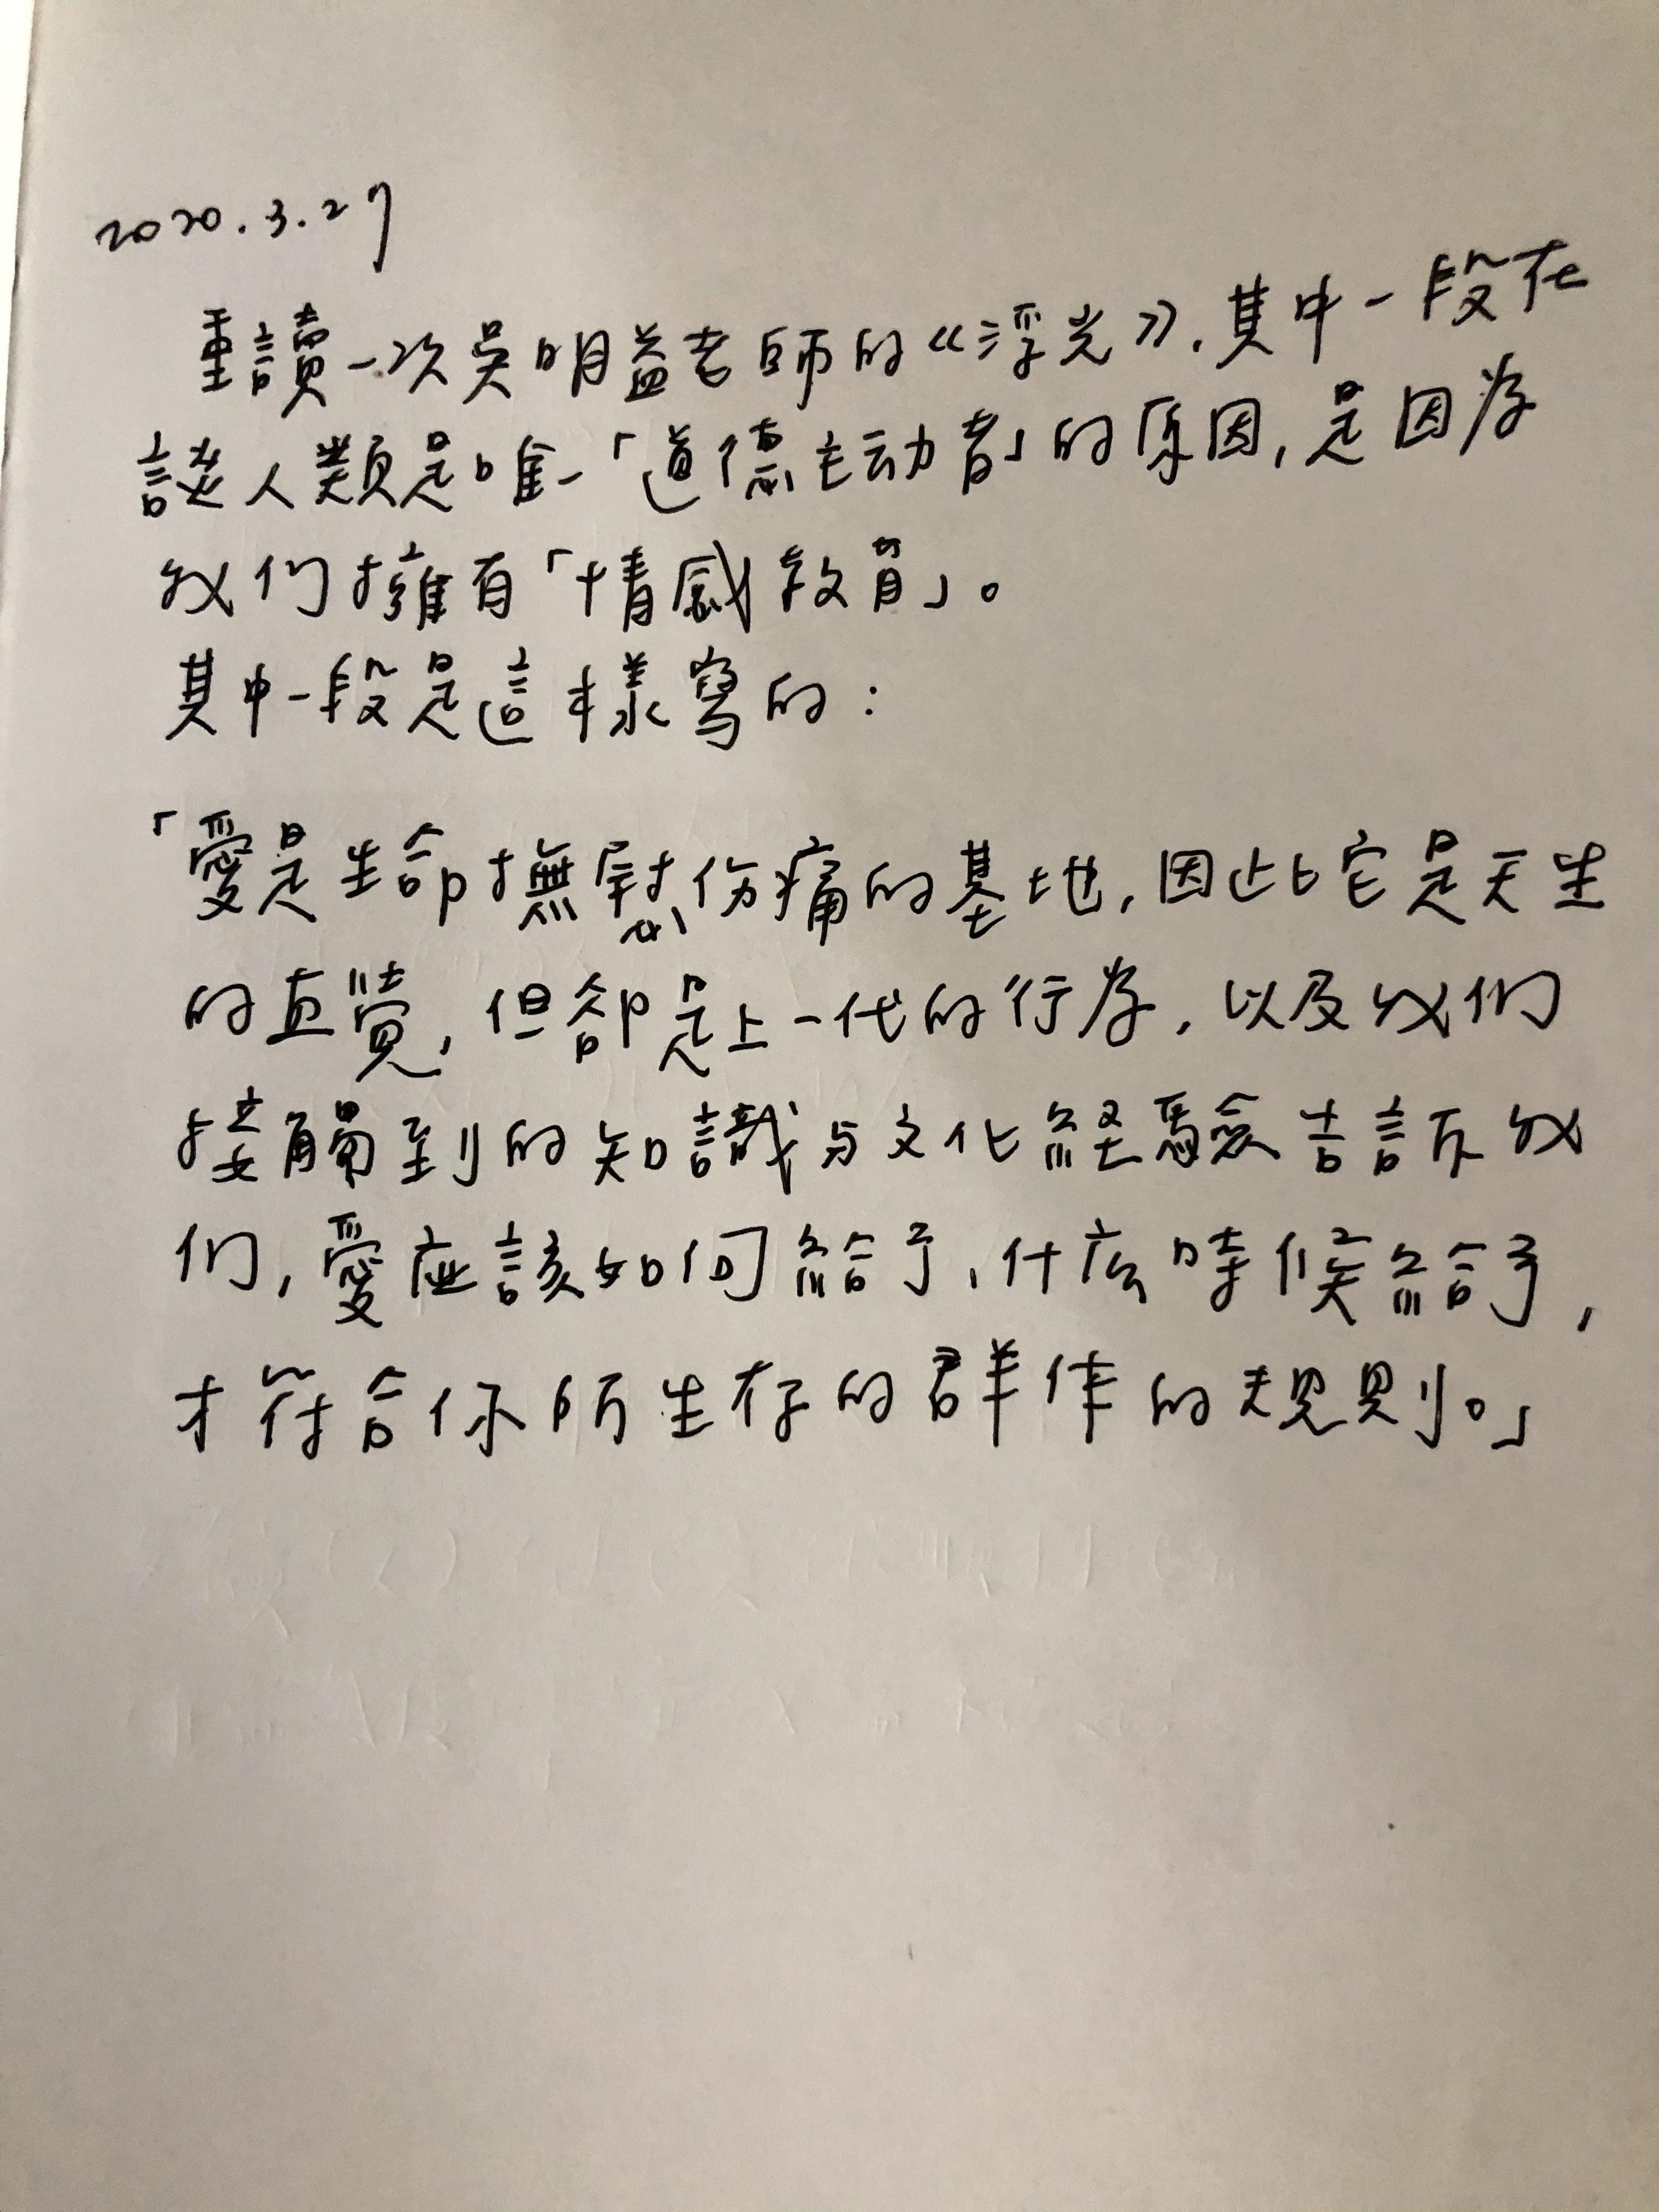 2020.3.27
重讀一次吳明益老師的《浮光》,其中一段在
談人類是唯一「道德主动者」的原因,是因为
我们擁有「情感教育」。
其中一段是這樣寫的:
「愛是生命撫慰伤痛的基地,因此它是天生
的直覺,但卻是上一代的行为,以及我们
接觸到的知識与文化経驗告訴我
们,愛应該如何給予,什庅時候給予,
才符合你所生存的群体的規則。」